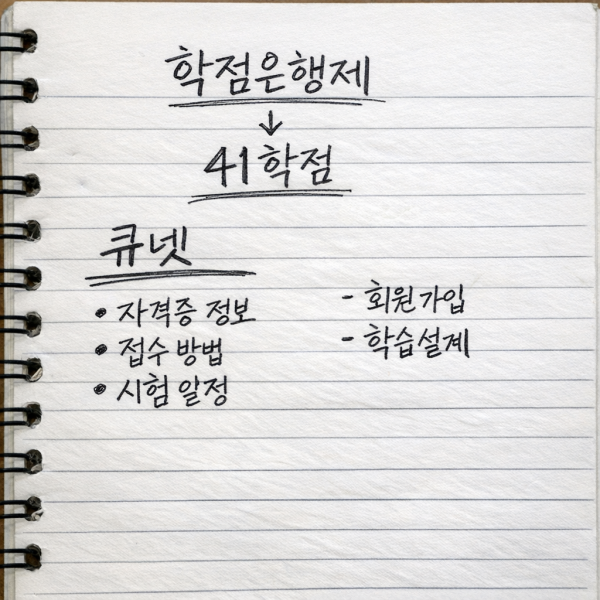 학점은행제
↓
41학점
큐넷
• 자격증 정보
• 접수 방법
• 시험 일정
- 회원가입
- 학습설계